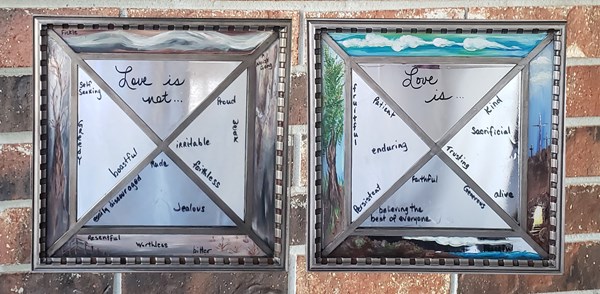 Fickle
Love is
not...
Self
Seeking
Proud
Weak
irritable
boastful
Rude
faithless
easily discouraged
Jealous
Resentful
Worthless
bitter
Love
is...
fruitful
Patient
Kind
Sacrificial
enduring
Trusting
faithful
Generous
alive
Persistent
believing the
best of everyone